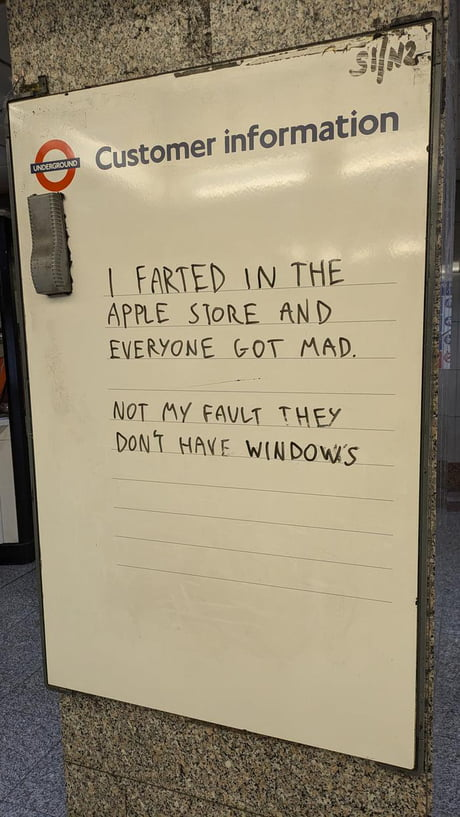 UNDERGROUND
Customer information
I FARTED IN THE
APPLE STORE AND
EVERYONE GOT MAD.
NOT MY FAULT THEY
DON'T HAVE WINDOWS